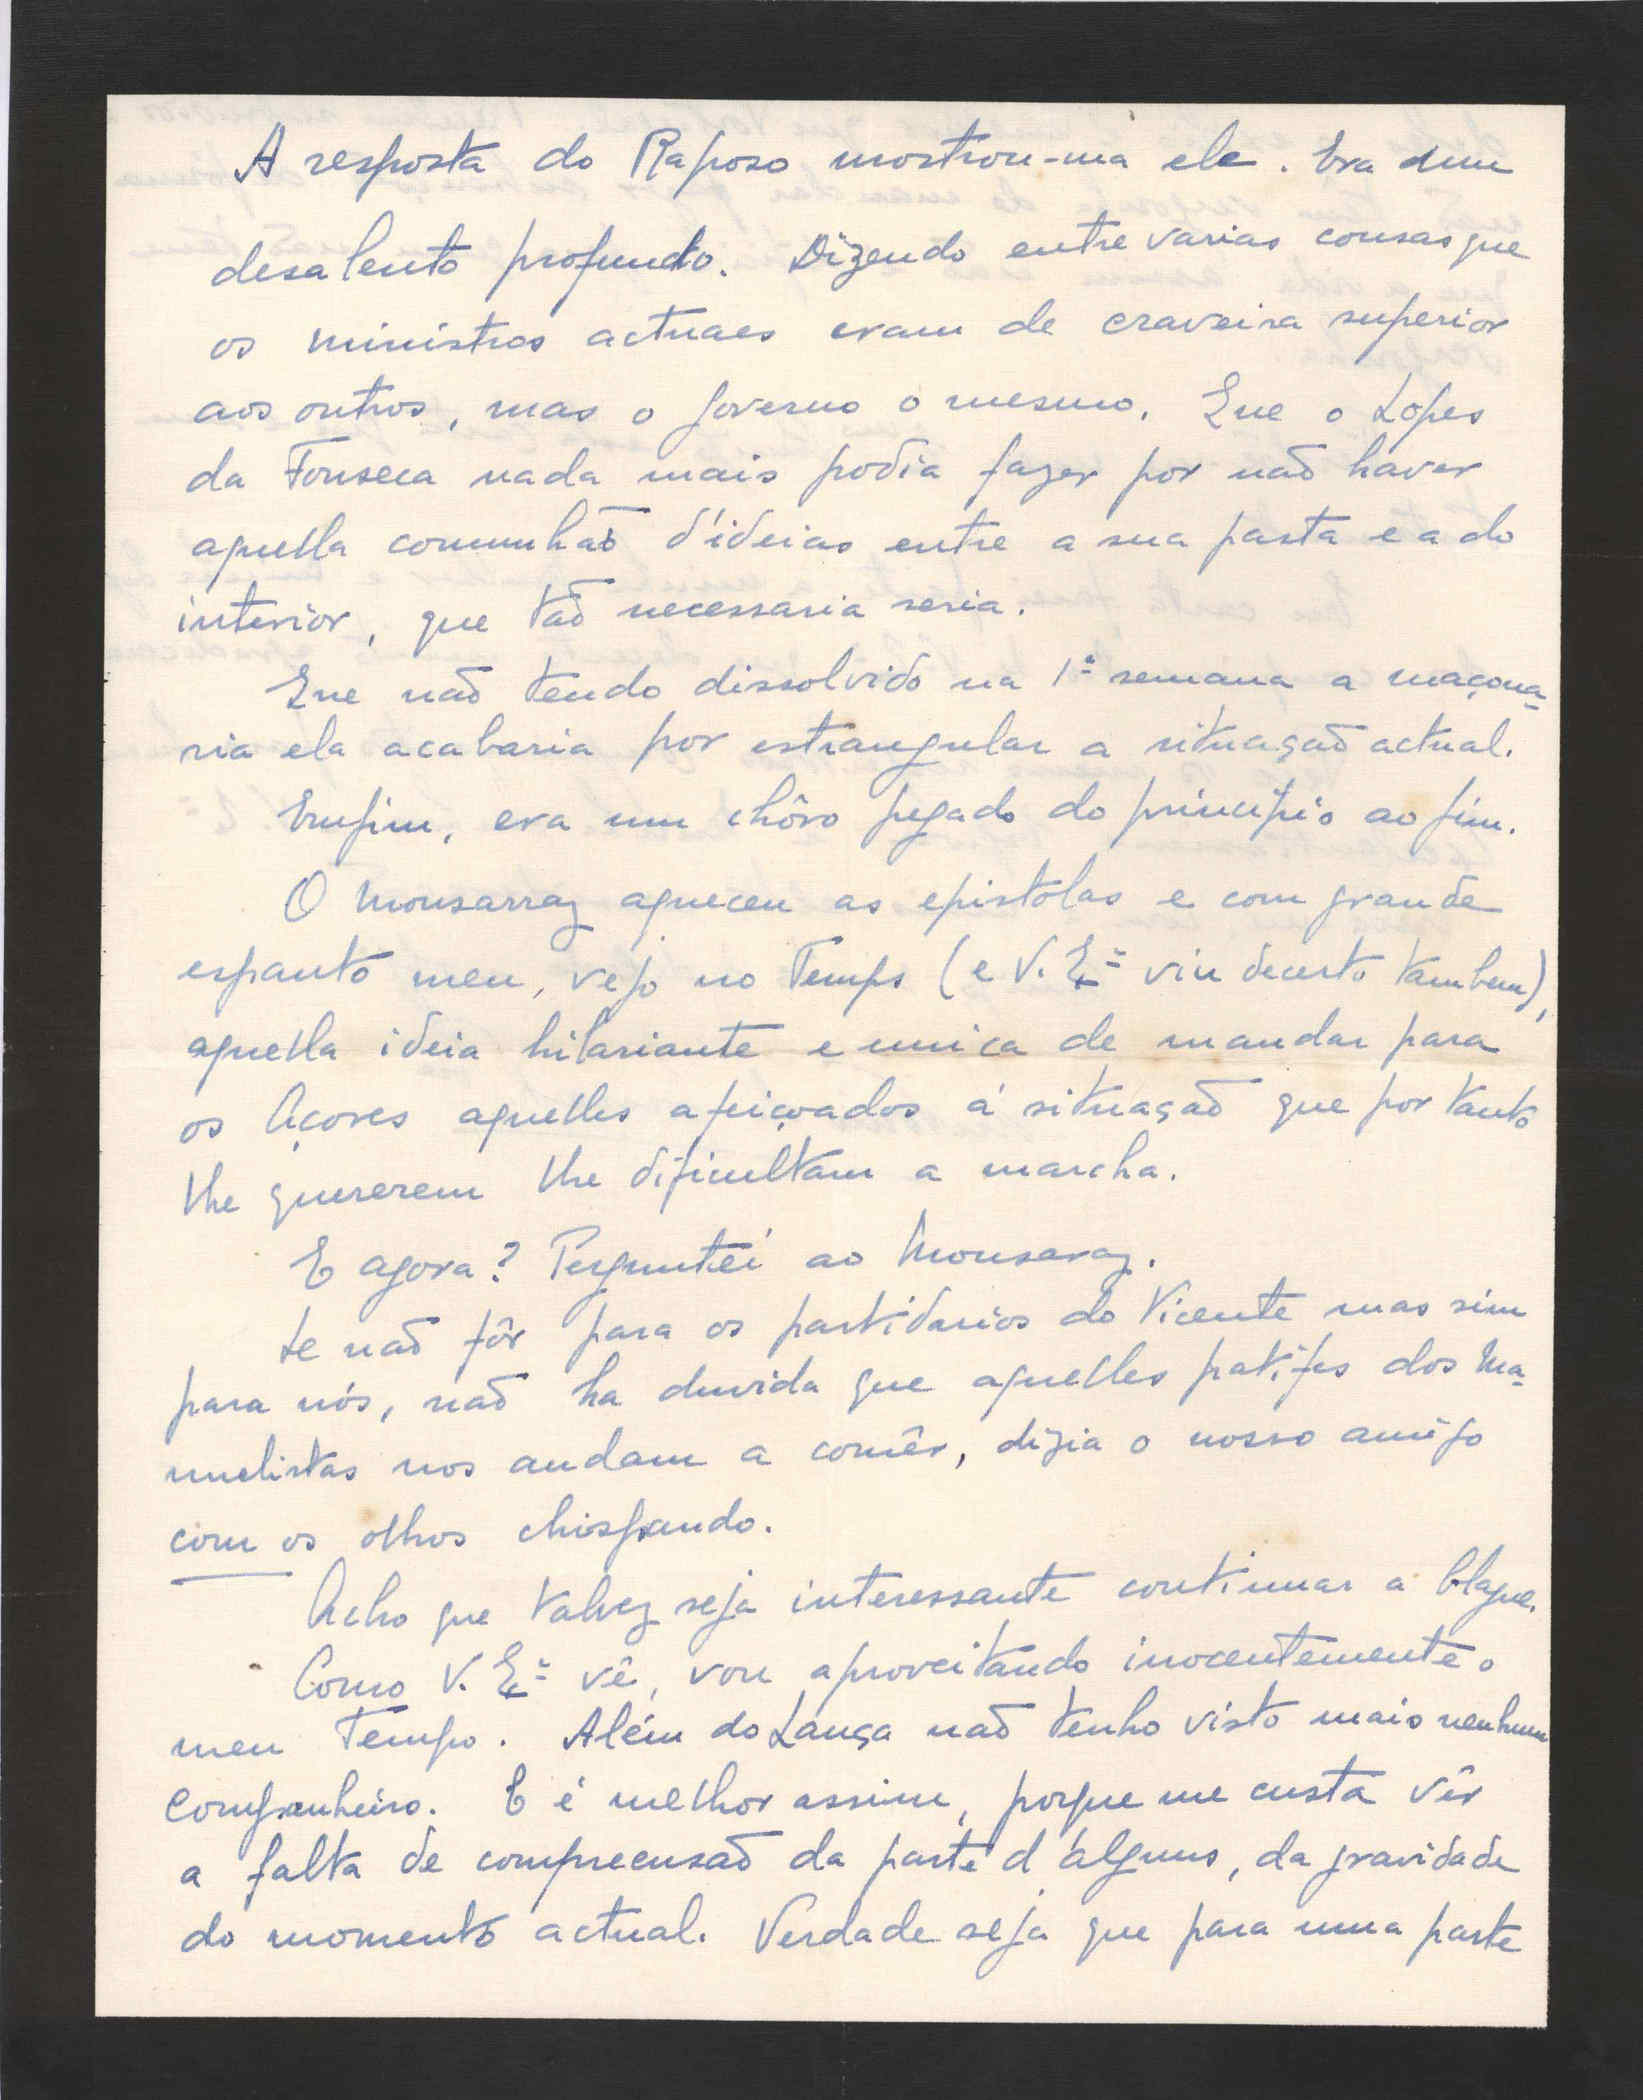 A resposta do Raposo mostrou-ma ele. Era dum
desalento profundo. Dizendo entre varias cousas que
os ministros actuaes eram de craveira superior
aos outros, mas o governo o mesmo. Que o Lopes
da Fonseca nada mais podia fazer por não haver
aquella comunhão d'ideias entre a sua pasta e a do
interior, que tão necessaria seria.
Que não tendo dissolvido na 1ª semana a maçona-
ria ela acabaria por estrangular a situação actual.
Emfim, era um chôro pegado do principio ao fim.
O Monsarraz aqueceu as epistolas e com grande
espanto meu, vejo no Temps (e V. Exª viu decerto tambem),
aquella ideia hilariante e unica de mandar para
os Açores aquelles afeiçoados á situação que por tanto
lhe quererem lhe dificultam a marcha.
E agora? Perguntei ao Monsaraz.
Se não fôr para os partidarios do Vicente mas sim
para nós, não ha duvida que aquelles patifes dos Ma-
nuelistas nos andam a comêr, dizia o nosso amigo
com os olhos chispando.
Acho que talvez seja interessante continuar a blague.
Como V. Exª vê, vou aproveitando inocentemente o
meu Tempo. Além do Lança não tenho visto mais nenhum
companheiro. E é melhor assim, porque me custa vêr
a falta de compreensão da parte d'alguns, da gravidade
do momento actual. Verdade seja que para uma parte